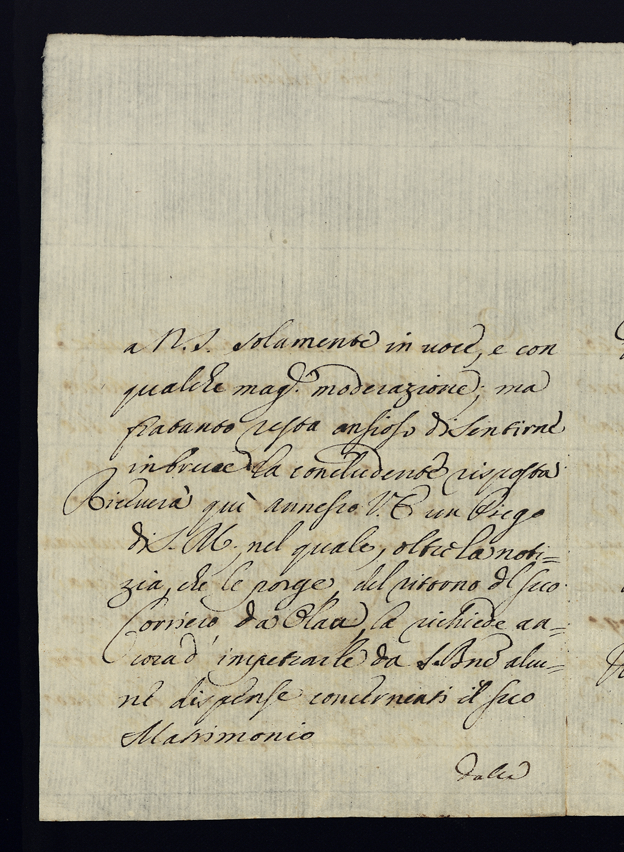 a N. S. solamente in voce, e con
qualche mag.r moderazione; ma
fratanto resta ansioso di sentirne
in breve la concludente risposta
Riceverà quì annesso V. E. un Piego
di S. M. nel quale, oltre la noti=
zia, che le porge, del ritorno del suo
Corriero da Olau, la richiede an=
cora d' impetrarle da S. Bne alcu=
ne dispense concernenti il suo
Matrimonio
dalla